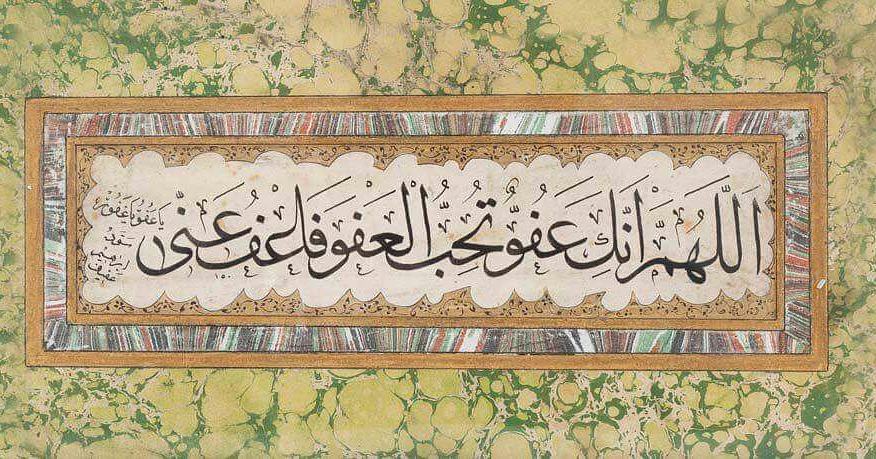 اَللّٰهُمَّ اِنَّكَ عَفُوٌّ تُحِبُّ الْعَفْوَ فَاعْفُ عَنّٖى
يا عفو يا غفور